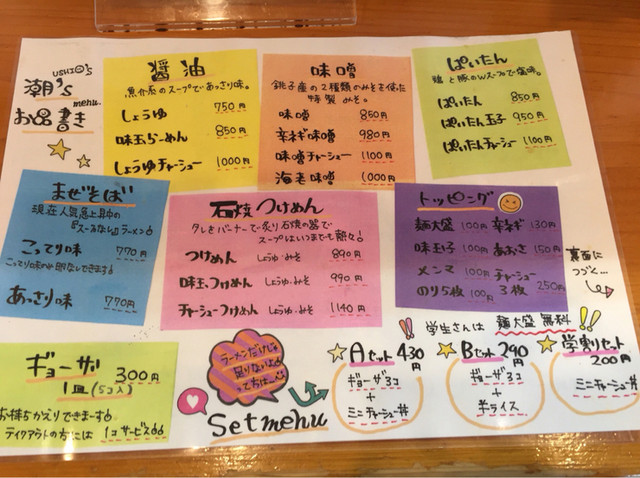 USHIO's
潮's
menu.
お品書き
醤油
魚介系のスープであっさり味。
しょうゆ 750円
味玉らーめん 850円
しょうゆチャーシュー 1000円
味噌
銚子産の2種類のみそを使った
特製みそ。
味噌 850円
辛ネギ味噌 980円
味噌チャーシュー 1100円
海老味噌 1000円
ぱいたん
鶏と豚のWスープで塩味。
ぱいたん 850円
ぱいたん玉子 950円
ぱいたんチャーシュー 1100円
まぜそば
浜荘人気急上昇中の
『スープなし』ラーメン
こってり味 770円
こってり味のみ卵なしできます
あっさり味 770円
石焼つけめん
タレをバーナーで炙り石焼の器で
スープはいつまでも熱々!
つけめん しょうゆ・みそ 890円
味玉つけめん しょうゆ・みそ 990円
チャーシューつけめん しょうゆ・みそ 1140円
トッピング
麺大盛 100円 辛ネギ 130円
味玉子 100円 あおさ 150円
メンマ 100円 チャーシュー
のり5枚 100円 3枚 250円
裏面に
つづく…
ギョーザ
1皿(5コ入) 300円
お持ちかえりできまーす
テイクアウトの方には 1コサービス
ラーメンだけじゃ
足りないよ
って方はー
Set menu
学生さんは 麺大盛 無料!!
Aセット 430円
ギョーザ3コ
+
ミニチャーシュー丼
Bセット 290円
ギョーザ3コ
+
半ライス
学割りセット
200円
ミニチャーシュー丼